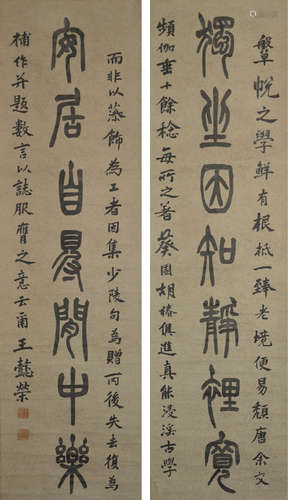 鞶帨之學鮮有根柢一臻老境便易頹唐余交
獨坐因知靜裡寬
頻伽垂十餘稔每所之著葵園胡椿俱進真能浸淫古學
而非以藻飾為工者因集少陵句為贈而後失去復為
安居自㝵閒中樂
補作并題數言以誌服膺之意云爾王懿榮